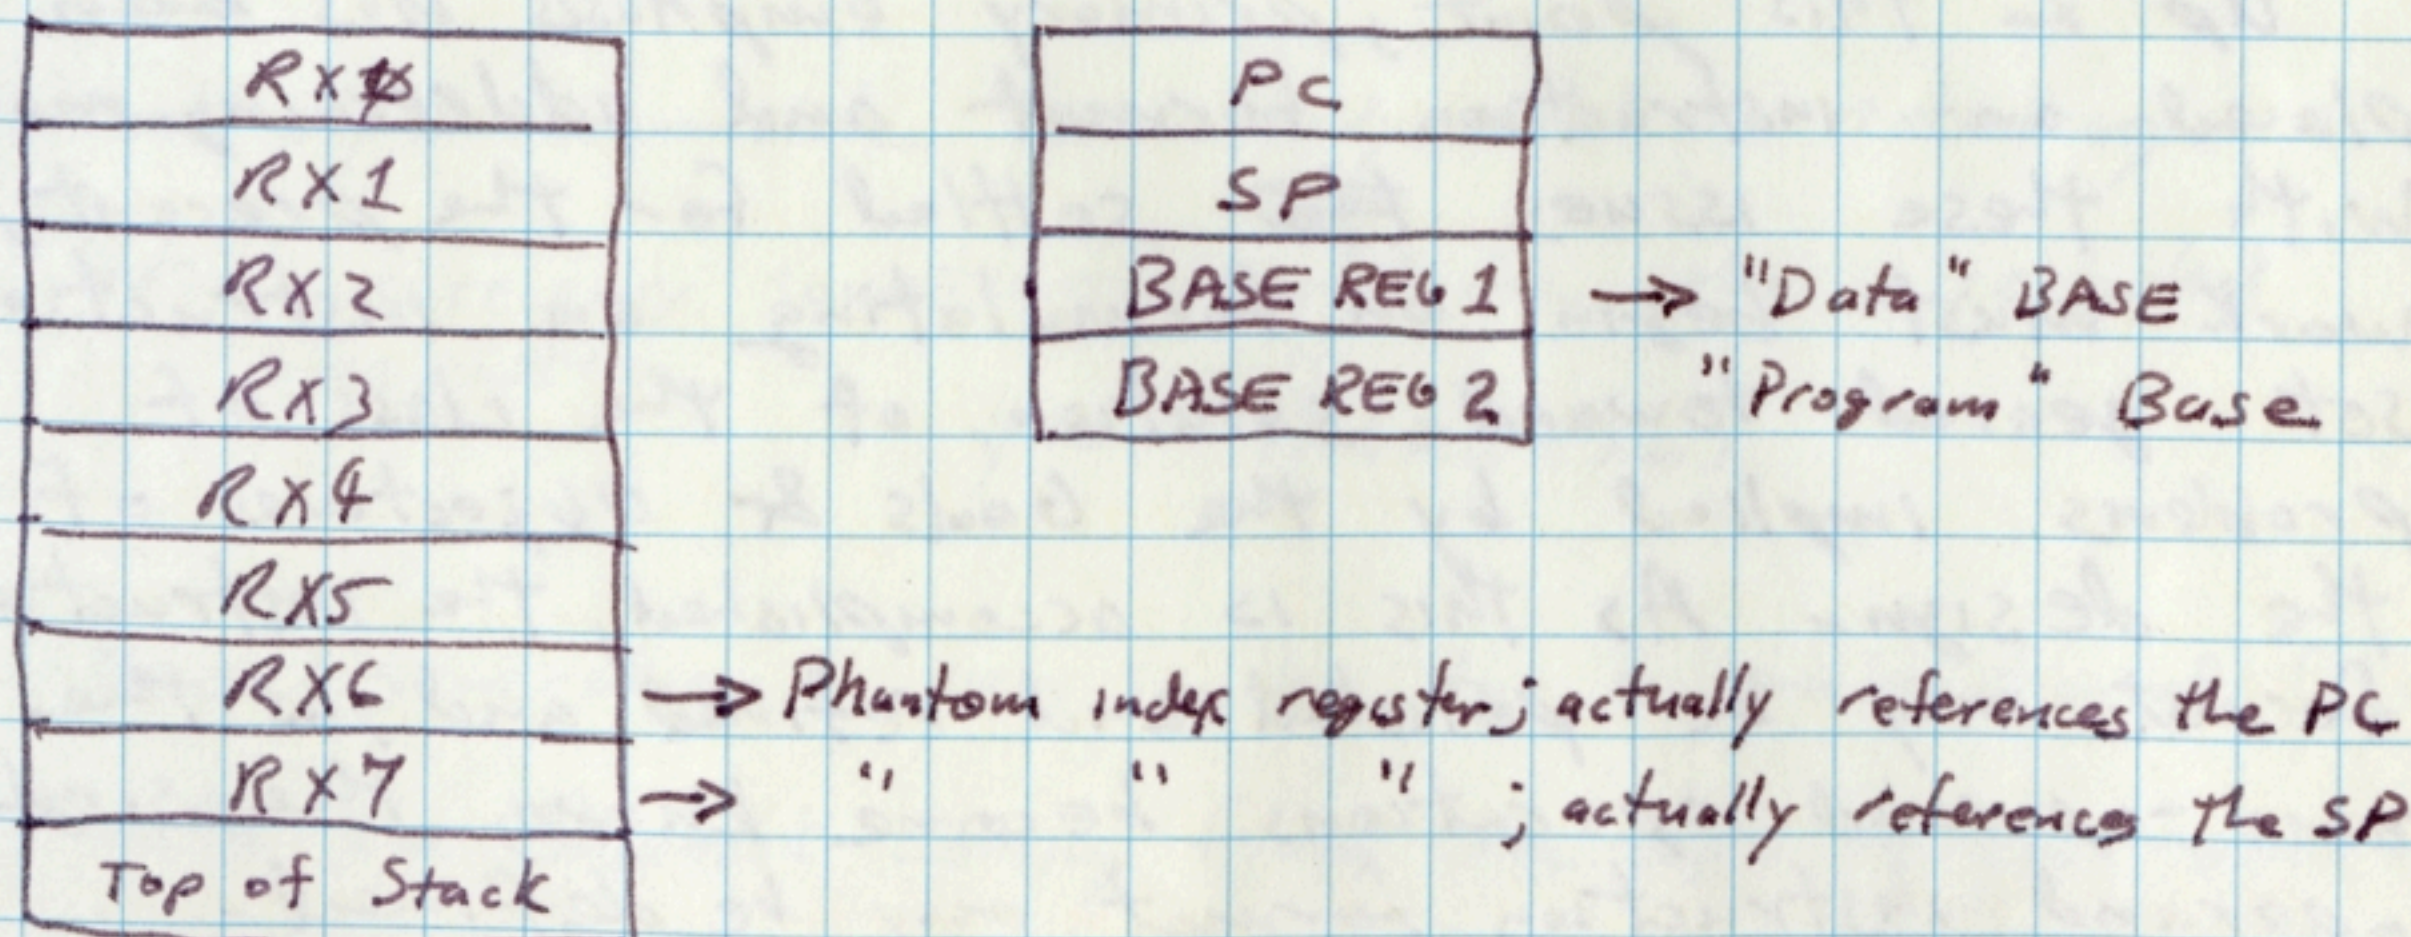 RX0
RX1
RX2
RX3
RX4
RX5
RX6 → Phantom index register; actually references the PC
RX7 → " " " ; actually references the SP
Top of Stack
PC
SP
BASE REG 1 → "Data" BASE
BASE REG 2 "Program" Base